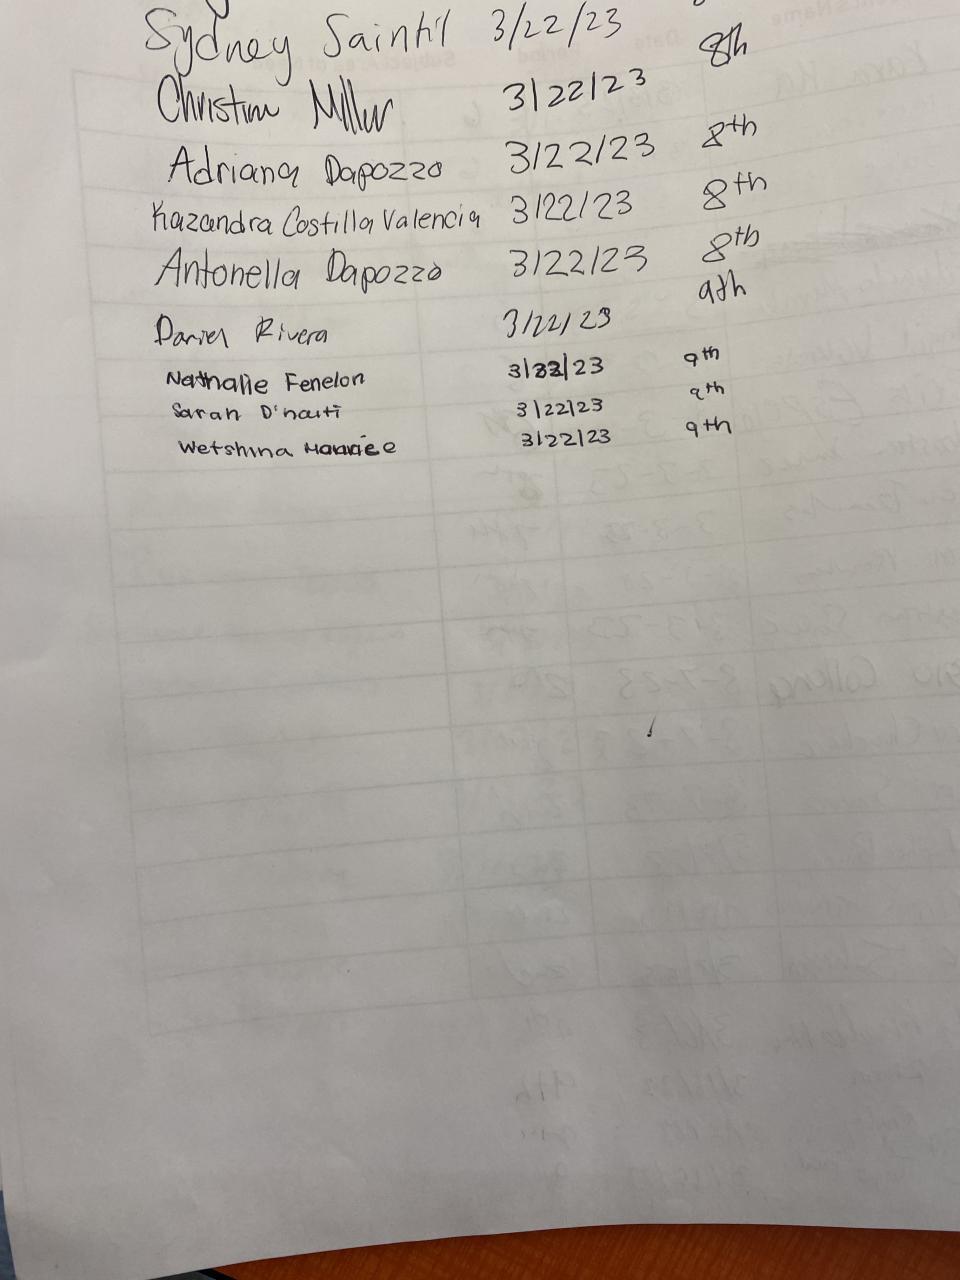 Sydney Saintil 3/22/23
Christina Miller 3/22/23 8th
Adriana Dapozzo 3/22/23 8th
Kazandra Costilla Valencia 3/22/23 8th
Antonella Dapozzo 3/22/23 8th
Daniel Rivera 3/22/23 9th
Nathalie Fenelon 3/22/23 9th
Sarah D'haiti 3/22/23 9th
Wetshina 3/22/23 9th